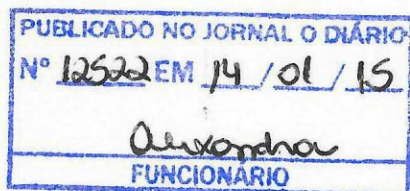 PUBLICADO NO JORNAL O DIÁRIO
Nº 12522 EM 14 / 01 / 15
Alexandra
FUNCIONÁRIO